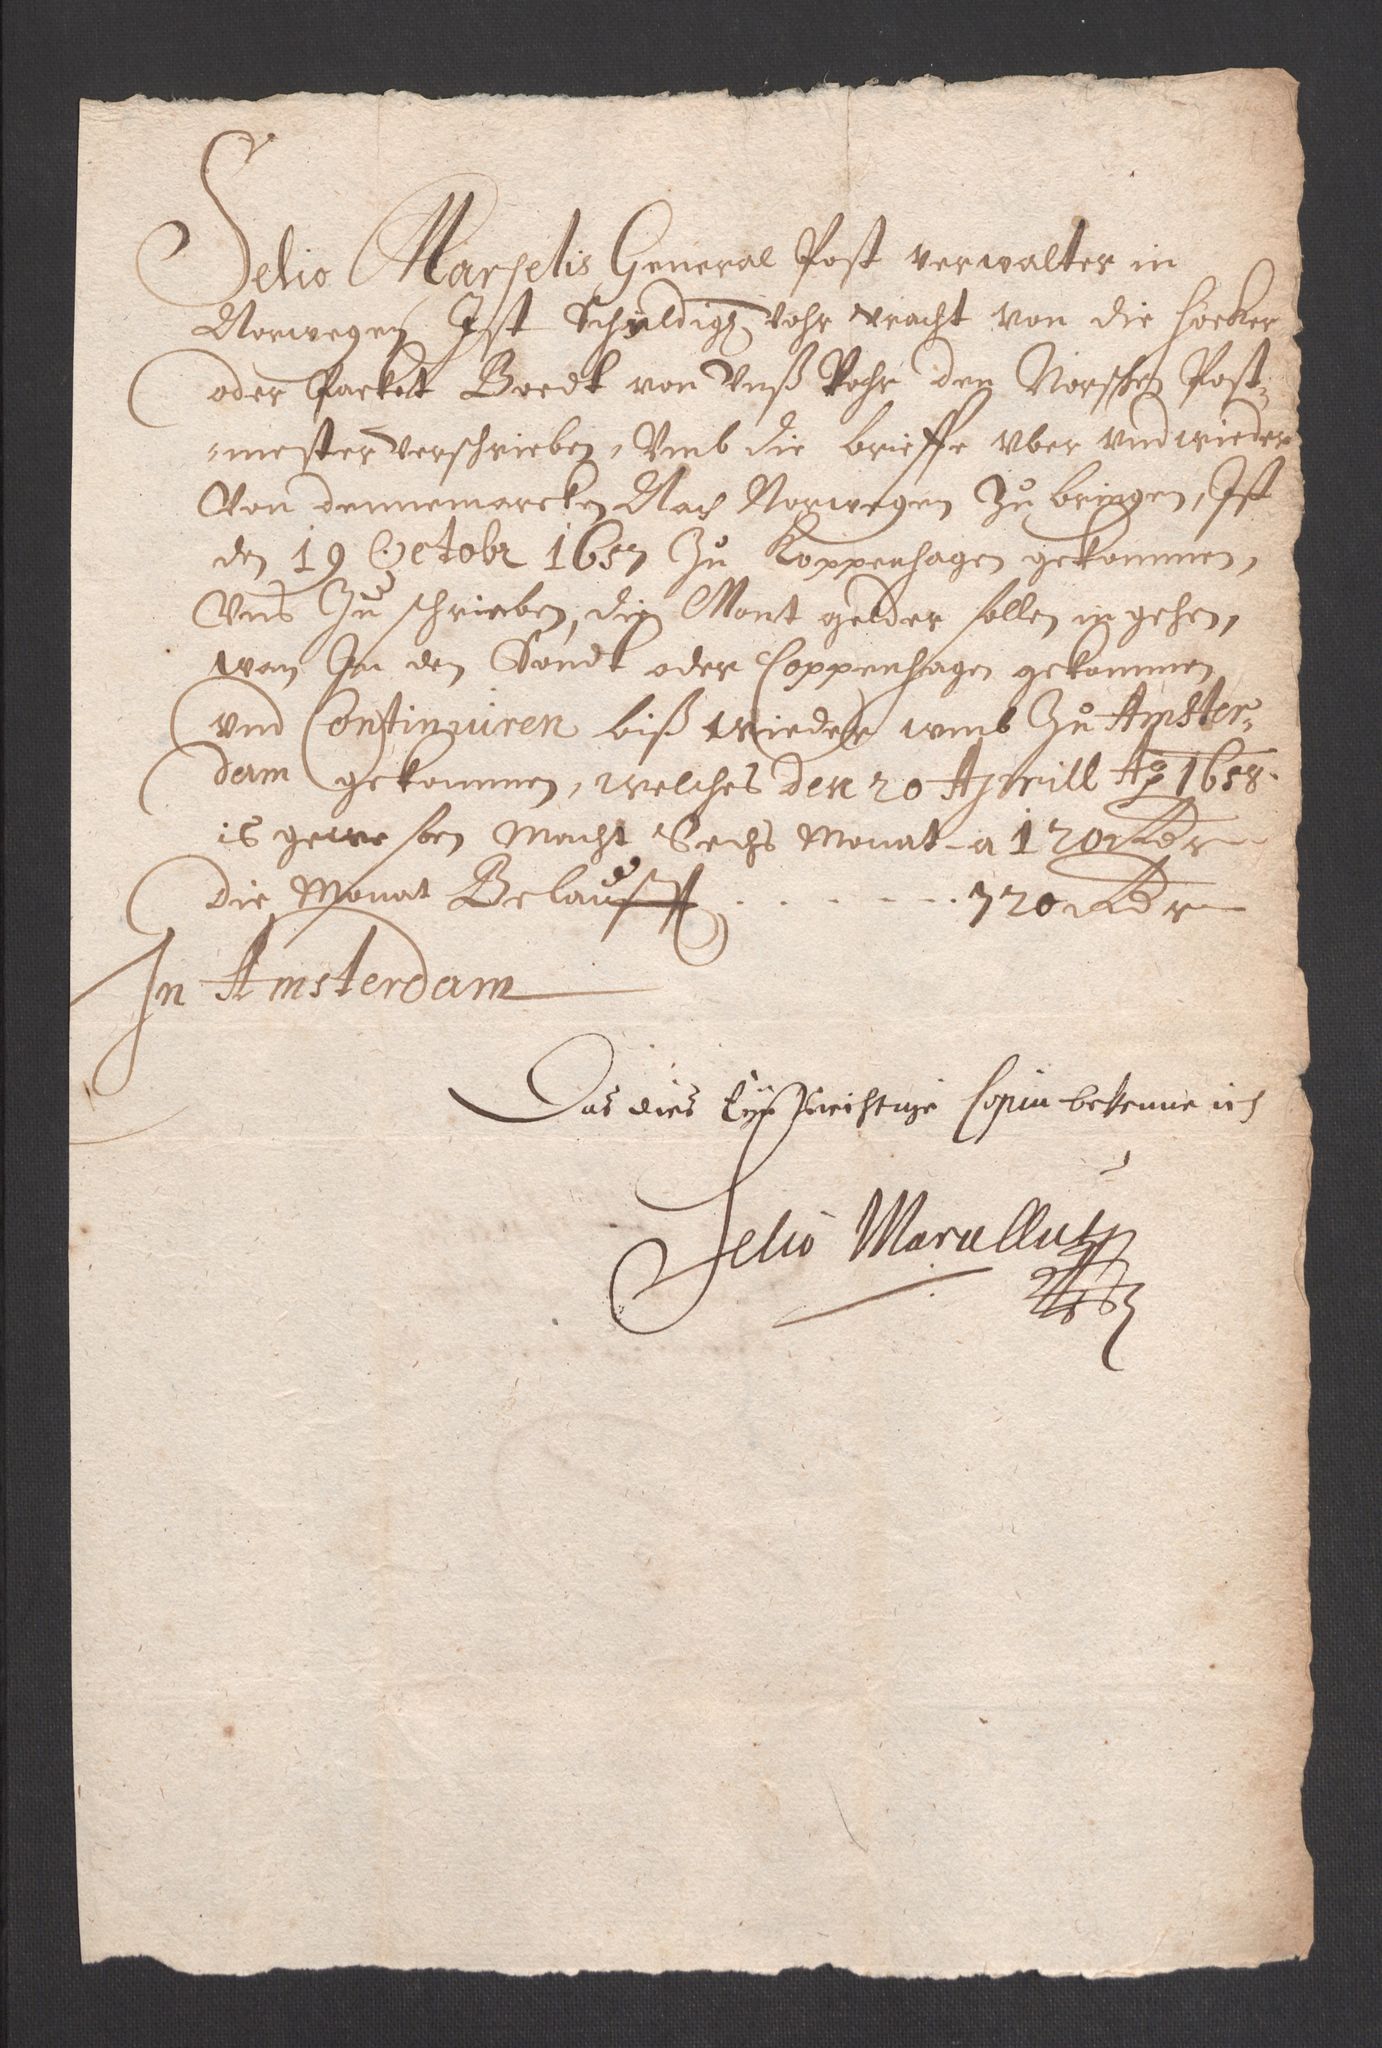 Selio Marselis General Post verwalter in
Norwegen Ist Schuldigh vohr vracht von die Hoeker
oder Packet Boedt von Vnß Vohr den Norschen Post-
-mester verschrieben, Vmb die brieffe vber vnd wieder
Von dennemarcken Nach Norwegen Zu bringen, Ist
den 19 Octobr 1657 Zu Koppenhagen gekommen,
Vns Zu schrieben, die Mont gelder sollen in gehen,
wan In den Sondt oder Coppenhagen gekommen
vnd Continuiren biß wieder vmb Zu Amster-
dam gekommen, welches den 20 Aprill Ao 1658
is gewesen Macht Sechs Monat a 120 Rdr
die Monat Belaufft . . . . . . . 720 Rdr
In Amsterdam
Das dies Copia bekenne ich
Selio Marselis